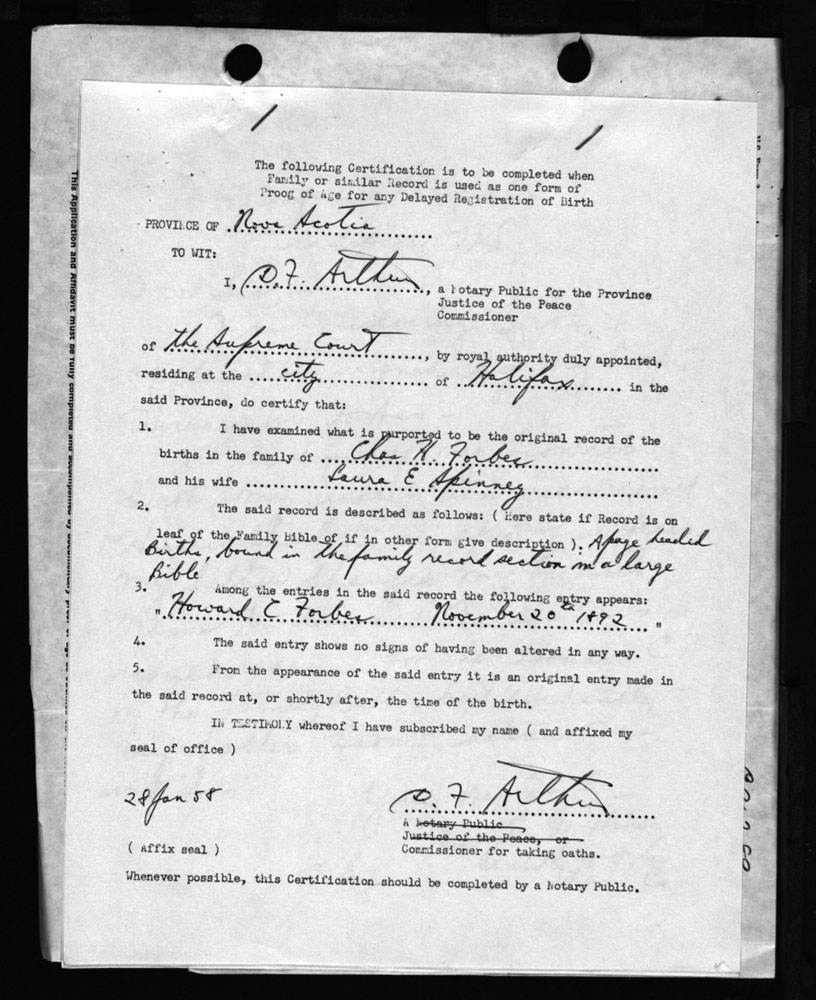 The following Certification is to be completed when
Family or similar Record is used as one form of
Proog of Age for any Delayed Registration of Birth
PROVINCE OF Nova Scotia
TO WIT:
I, D. F. Arthur, a Notary Public for the Province
Justice of the Peace
Commissioner
of the Supreme Court, by royal authority duly appointed,
residing at the city of Halifax in the
said Province, do certify that:
1. I have examined what is purported to be the original record of the
births in the family of Chas H. Forbes
and his wife Laura E Spinney
2. The said record is described as follows: ( Here state if Record is on
leaf of the Family Bible of if in other form give description ). A page headed
Births, bound in the family record section in a large
Bible
3. Among the entries in the said record the following entry appears:
" Howard C Forbes November 20th 1892 "
4. The said entry shows no signs of having been altered in any way.
5. From the appearance of the said entry it is an original entry made in
the said record at, or shortly after, the time of the birth.
IN TESTIMONY whereof I have subscribed my name ( and affixed my
seal of office )
28 Jan 58
D. F. Arthur
A Notary Public
Justice of the Peace, or
( Affix seal ) Commissioner for taking oaths.
Whenever possible, this Certification should be completed by a Notary Public.
This Application and Affidavit must be fully completed and accompanied by